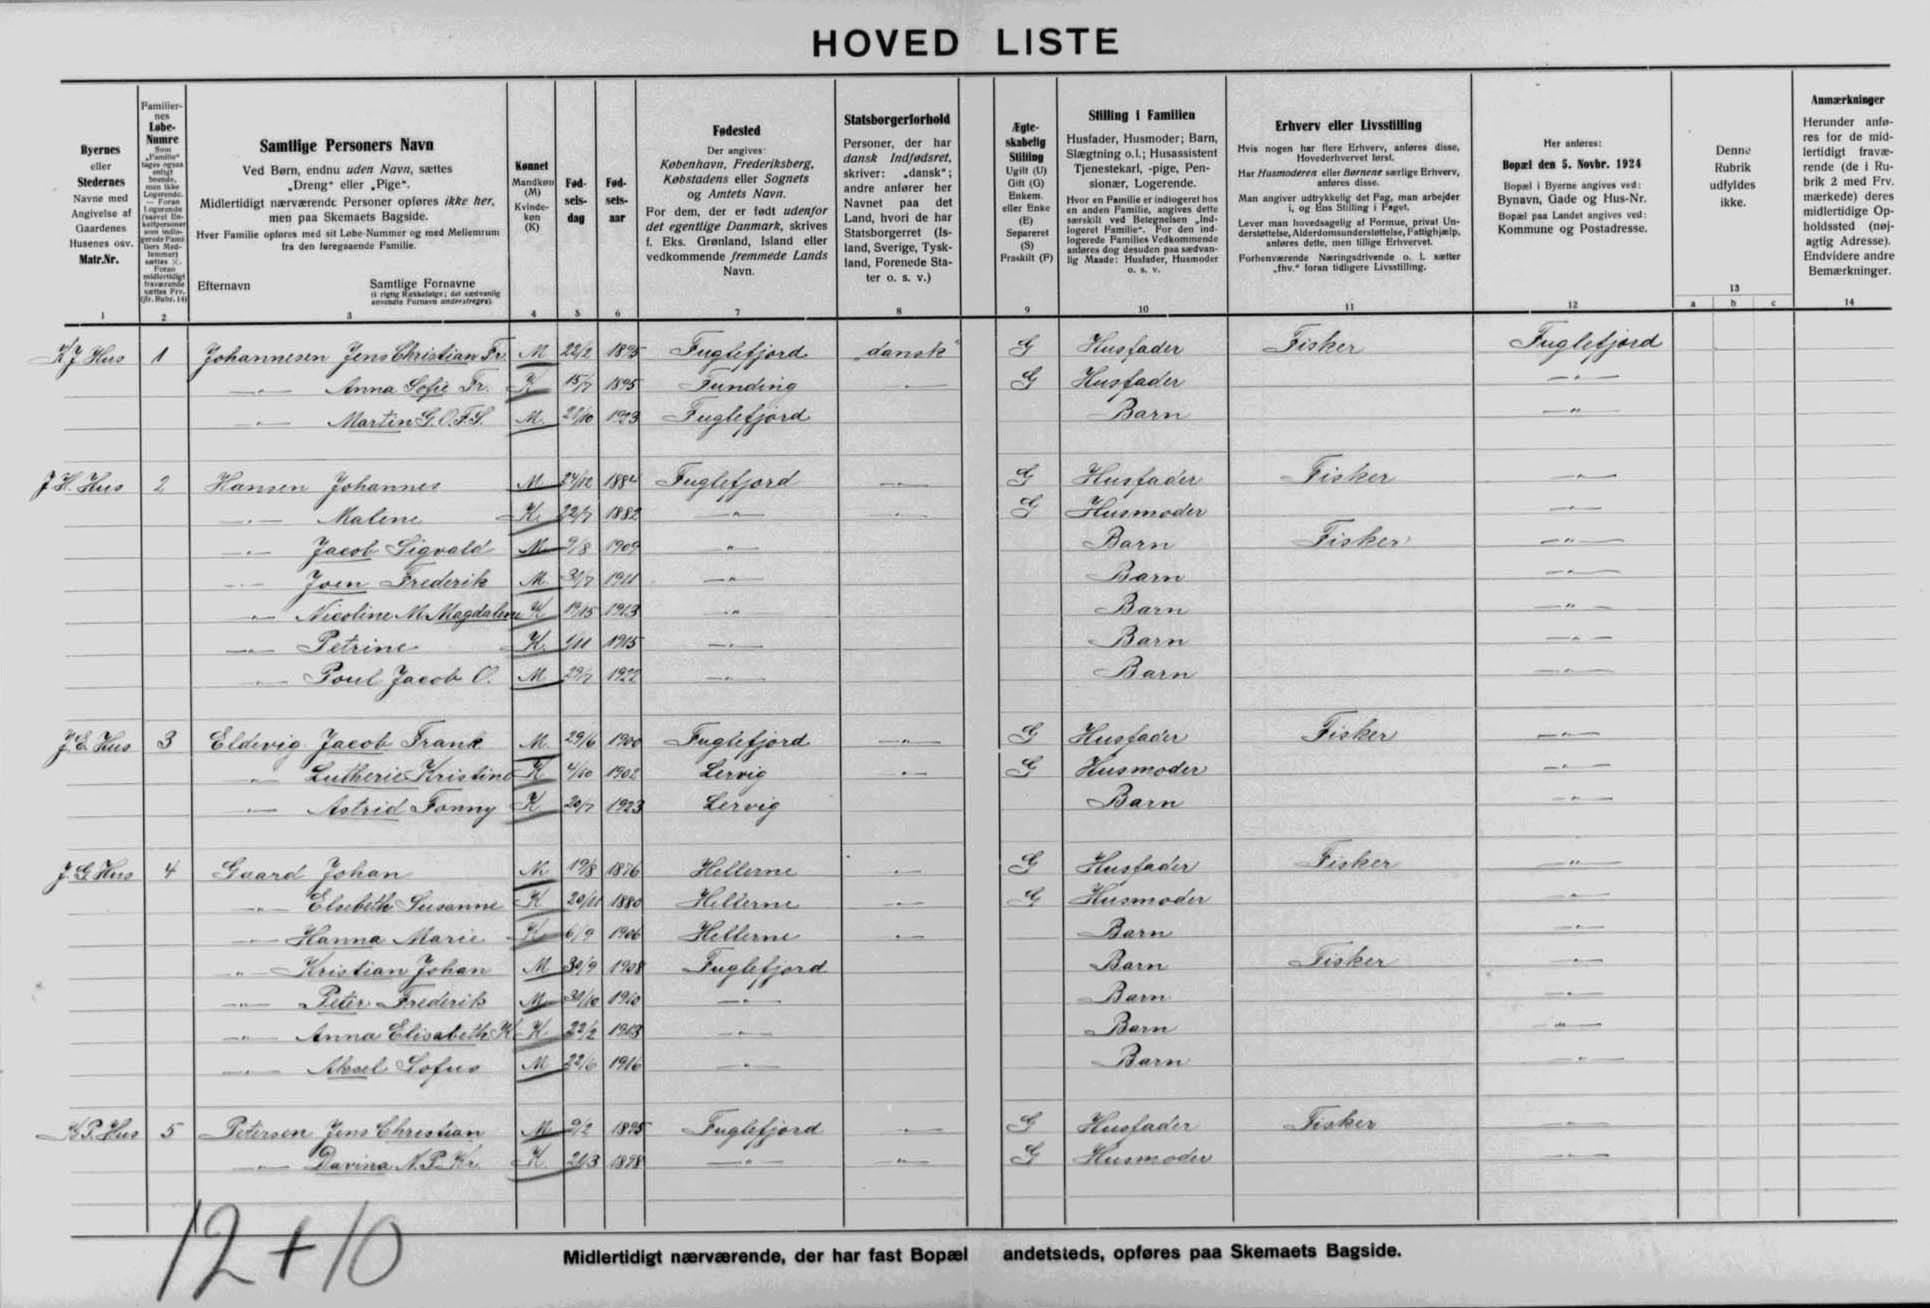 HOVED LISTE
Byernes
eller
Stedernes
Navne med
Angivelse af
Gaardenes
Husenes osv.
Matr.Nr.
1
Familier-
nes
Løbe-
Numre
Som
„Familie"
tages ogsaa
enligt
boende,
men ikke
Logerende.
— Foran
Logerende
sættes ×.
Foran
midlertidigt
fraværende
sættes Frv.
(jfr. Rubr. 14)
2
Samtlige Personers Navn
Ved Børn, endnu uden Navn, sættes
„Dreng" eller „Pige".
Midlertidigt nærværende Personer opføres ikke her,
men paa Skemaets Bagside.
Hver Familie opføres med sit Løbe-Nummer og med Mellemrum
fra den foregaaende Familie.
Efternavn
Samtlige Fornavne
(i rigtig Rækkefølge; det sædvanlig
anvendte Fornavn understreges).
3
Kønnet
Mandkøn
(M)
Kvinde-
køn
(K)
4
Fød-
sels-
dag
5
Fød-
sels-
aar
6
Fødested
Der angives:
København, Frederiksberg,
Købstadens eller Sognets
og Amtets Navn.
For dem, der er født udenfor
det egentlige Danmark, skrives
f. Eks. Grønland, Island eller
vedkommende fremmede Lands
Navn.
7
Statsborgerforhold
Personer, der har
dansk Indfødsret,
skriver: „dansk";
andre anfører her
Navnet paa det
Land, hvori de har
Statsborgerret (Is-
land, Sverige, Tysk-
land, Forenede Sta-
ter o. s. v.)
8
Ægte-
skabelig
Stilling
Ugift (U)
Gift (G)
Enkem.
eller Enke
(E)
Separeret
(S)
Fraskilt (F)
9
Stilling i Familien
Husfader, Husmoder; Barn,
Slægtning o.l.; Husassistent
Tjenestekarl, -pige, Pen-
sionær, Logerende.
Hvor en Familie er indlogeret hos
en anden Familie, angives dette
særskilt ved Betegnelsen „Ind-
logeret Familie". For den ind-
logerede Families Vedkommende
anføres dog desuden paa sædvan-
lig Maade: Husfader, Husmoder
o. s. v.
10
Erhverv eller Livsstilling
Hvis nogen har flere Erhverv, anføres disse,
Hovederhvervet først.
Har Husmoderen eller Børnene særlige Erhverv,
anføres disse.
Man angiver udtrykkelig det Fag, man arbejder
i, og Ens Stilling i Faget.
Lever man hovedsagelig af Formue, privat Un-
derstøttelse, Alderdomsunderstøttelse, Fattighjælp,
anføres dette, men tillige Erhvervet.
Forhenværende Næringsdrivende o. l. sætter
„fhv." foran tidligere Livsstilling.
11
Her anføres:
Bopæl den 5. Novbr. 1924
Bopæl i Byerne angives ved:
Bynavn, Gade og Hus-Nr.
Bopæl paa Landet angives ved:
Kommune og Postadresse.
12
Denne
Rubrik
udfyldes
ikke.
13
a b c
Anmærkninger
Herunder anfø-
res for de mid-
lertidigt fravæ-
rende (de i Ru-
brik 2 med Frv.
mærkede) deres
midlertidige Op-
holdssted (nøj-
agtig Adresse).
Endvidere andre
Bemærkninger.
14
K J Hus 1 Johannesen Jens Christian Fr. M 22/2 1895 Fuglefjord „dansk" G Husfader Fisker Fuglefjord
—"— Anna Sofie Fr. K 15/7 1895 Funding —"— G Husfader —"—
—"— Martin G. O. F. S. M. 28/10 1923 Fuglefjord Barn —"—
J H. Hus 2 Hansen Johannes M 24/12 1884 Fuglefjord —"— G Husfader Fisker —"—
—"— Malene K. 22/7 1882 —"— —"— G Husmoder —"—
—"— Jacob Sigvald M 9/8 1909 —"— Barn Fisker —"—
—"— Joen Frederik M. 31/7 1911 —"— Barn —"—
—"— Nicoline M. Magdalene K 19/5 1913 —"— Barn —"—
—"— Petrine K. 1/11 1915 —"— Barn —"—
—"— Poul Jacob O. M 29/7 1922 —"— Barn —"—
J. E. Hus 3 Eldevig Jacob Frank M. 29/6 1900 Fuglefjord —"— G Husfader Fisker —"—
—"— Lutherie Kristine K 4/10 1902 Lervig —"— G Husmoder —"—
—"— Astrid Fonny K 20/7 1923 Lervig Barn —"—
J. G. Hus 4 Gaard Johan M 19/8 1876 Hellerne —"— G Husfader Fisker —"—
—"— Elsebeth Susanne K 20/11 1880 Hellerne —"— G Husmoder —"—
—"— Hanna Marie K 6/9 1906 Hellerne —"— Barn —"—
—"— Kristian Johan M 30/9 1908 Fuglefjord Barn Fisker —"—
—"— Peter Frederik M 31/10 1910 —"— Barn —"—
—"— Anna Elisabeth K. K 22/2 1913 —"— Barn —"—
—"— Aksel Sofus M 22/6 1916 —"— Barn —"—
K P. Hus 5 Petersen Jens Christian M 9/2 1895 Fuglefjord —"— G Husfader Fisker —"—
—"— Davina N. P. Kr. K 21/3 1898 —"— —"— G Husmoder —"—
12 + 10
Midlertidigt nærværende, der har fast Bopæl andetsteds, opføres paa Skemaets Bagside.